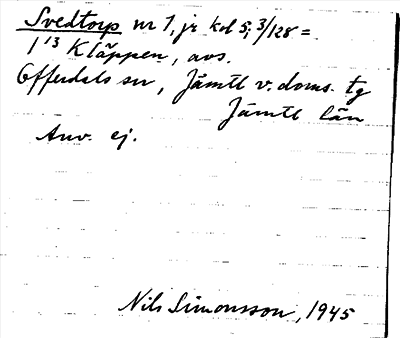 Svedtorp nr 1, jr kol 5; 3/128 =
1 13 Kläppen, avs.
Offerdals sn, Jämtl v. doms. tg
Jämtl län
Anv. ej.
Nils Simonsson, 1945